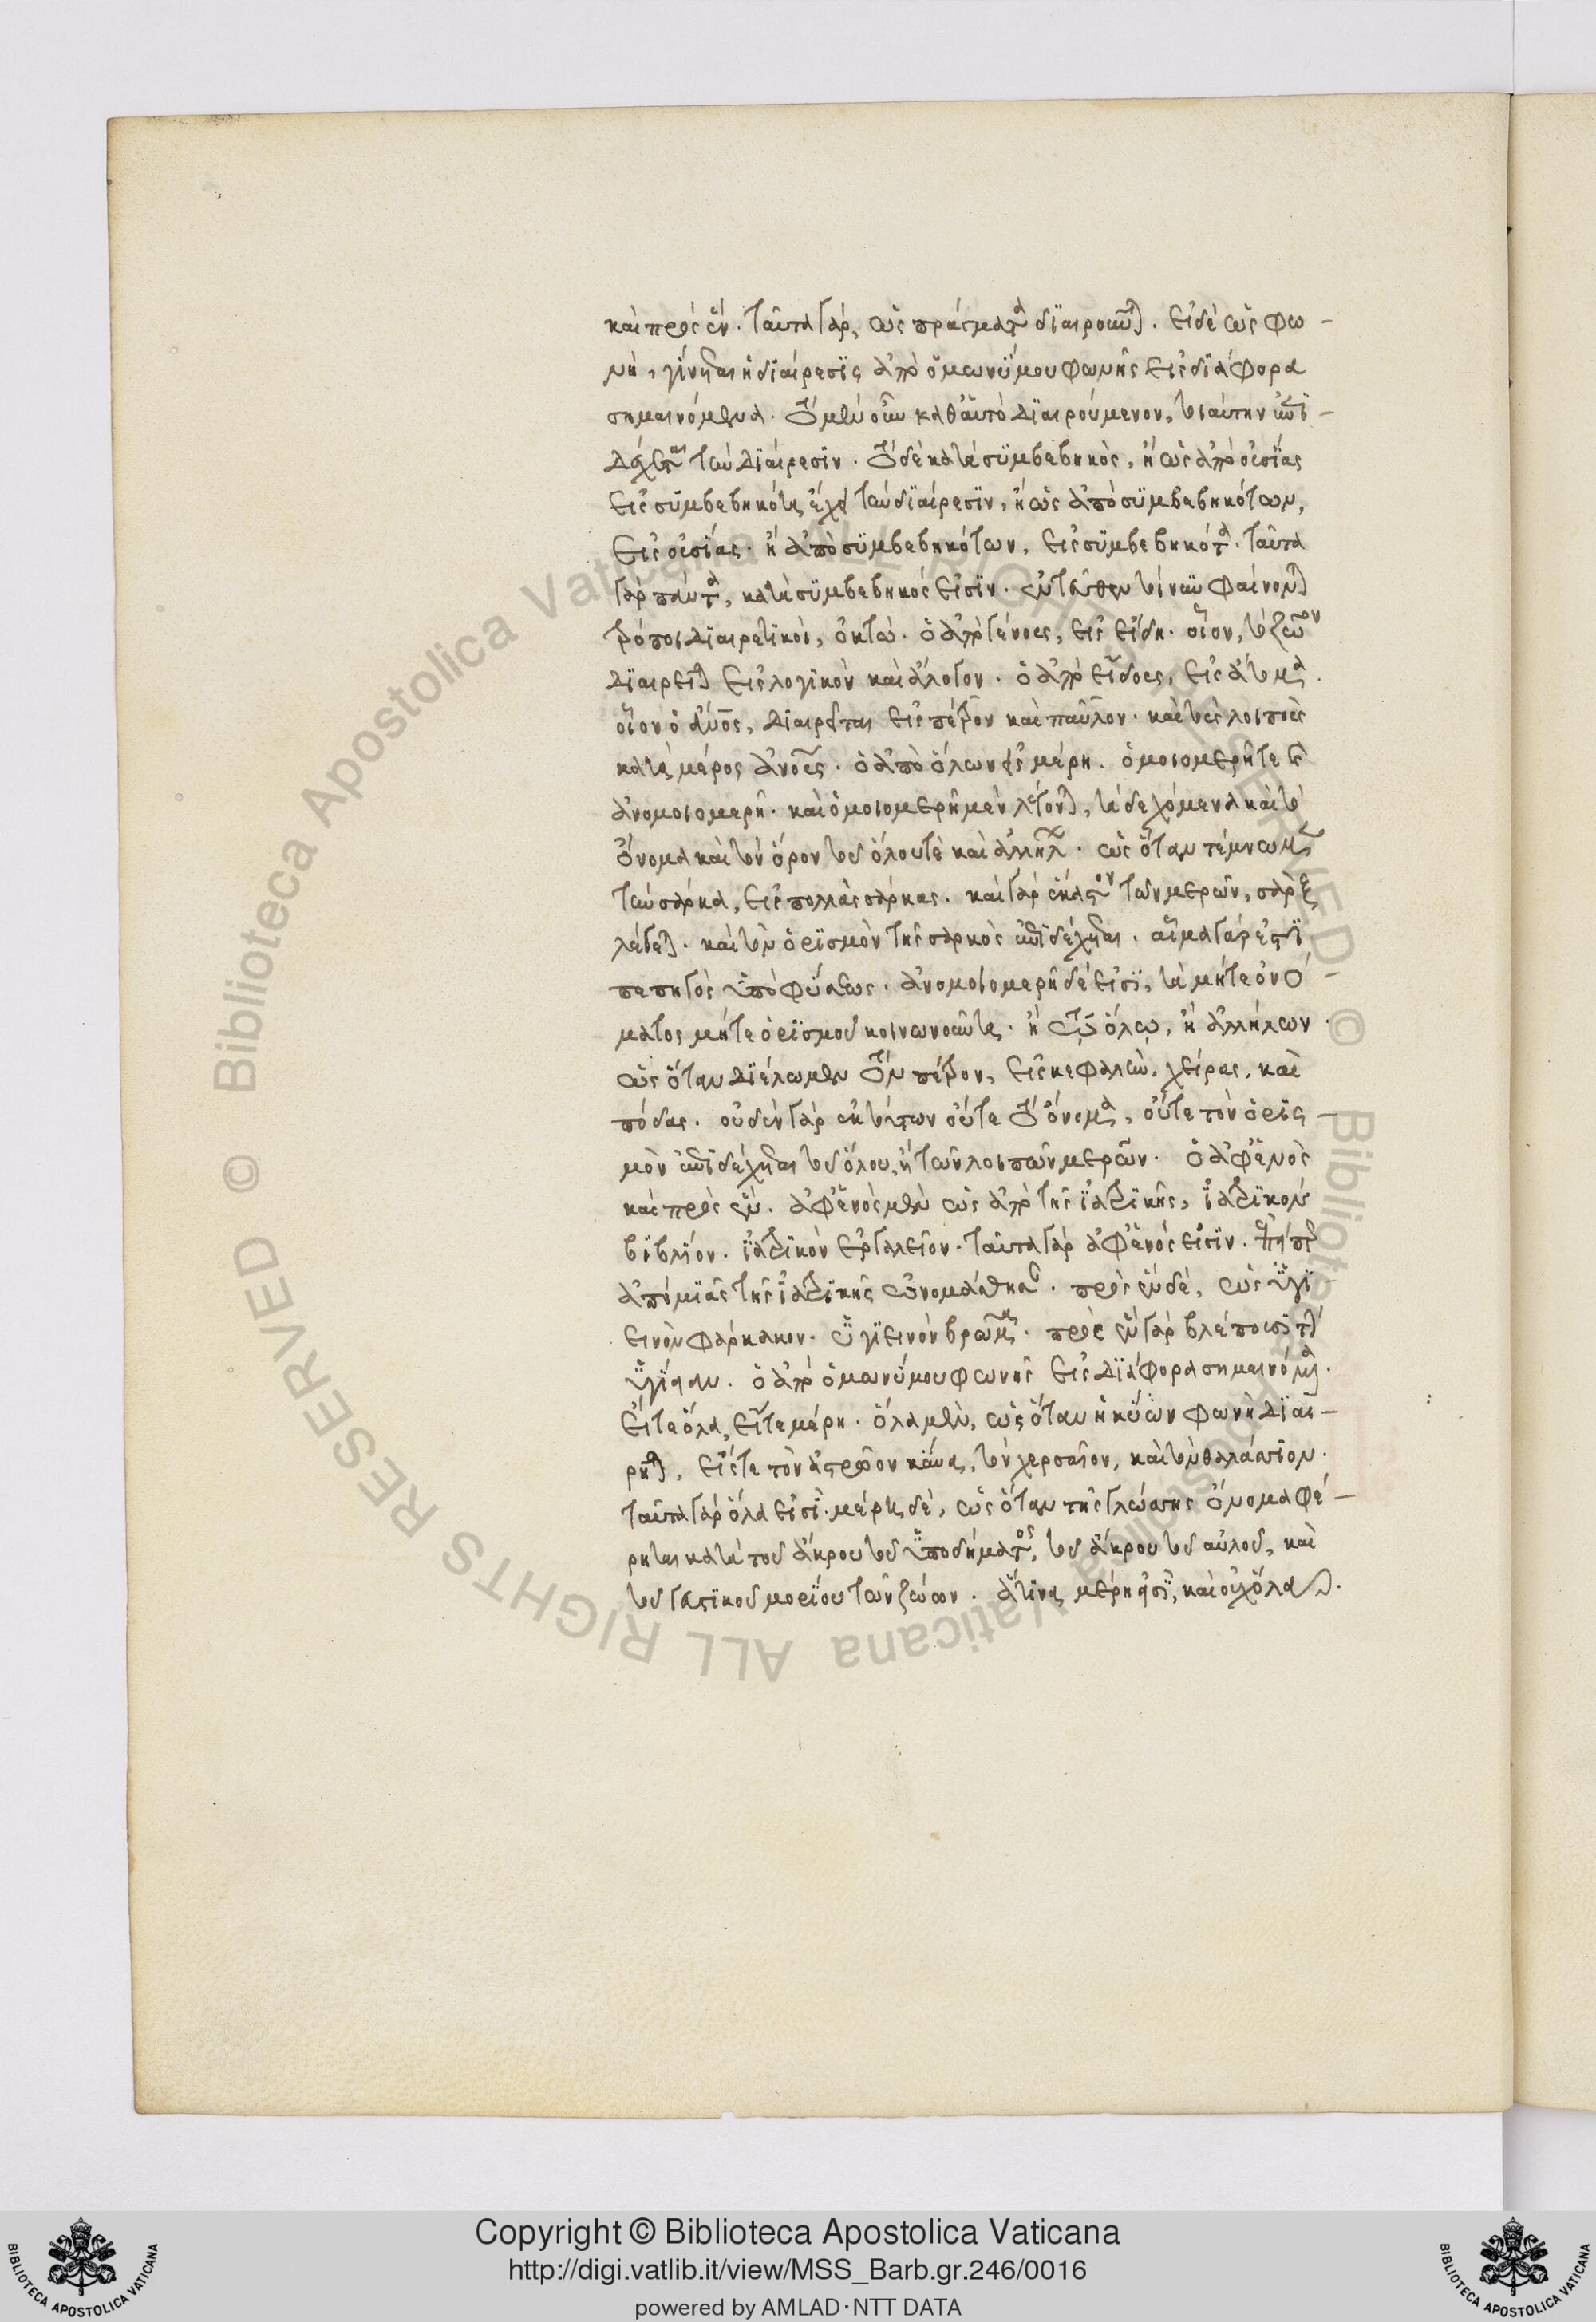 καὶ πρὸς ἕν. ταῦτα γὰρ, ὡς πράγματα διαιροῦνται. εἰ δὲ ὡς φω-
νὴ, γίνεται ἡ διαίρεσις ἀπὸ ὁμωνύμου φωνῆς εἰς διάφορα
σημαινόμενα. τὸ μὲν οὖν καθ' αὑτὸ διαιρούμενον, τοιαύτην ἐπι-
δέχεται τὴν διαίρεσιν. τὸ δὲ κατὰ συμβεβηκὸς, ἢ ὡς ἀπὸ οὐσίας
εἰς συμβεβηκότα ἔχει τὴν διαίρεσιν, ἢ ὡς ἀπὸ συμβεβηκότων,
εἰς οὐσίας. ἢ ἀπὸ συμβεβηκότων, εἰς συμβεβηκότα. ταῦτα
γὰρ πάντα, κατὰ συμβεβηκός εἰσιν. ἐντεῦθεν τοίνυν φαίνονται
τρόποι διαιρετικοὶ, ὀκτώ. ὁ ἀπὸ γένους, εἰς εἴδη. οἷον, τὸ ζῶον
διαιρεῖται εἰς λογικὸν καὶ ἄλογον. ὁ ἀπὸ εἴδους, εἰς ἄτομα.
οἷον ὁ ἄνος, διαιρεῖται εἰς πέτρον καὶ παῦλον. καὶ τοὺς λοιποὺς
κατὰ μέρος ἀνους. ὁ ἀπὸ ὅλων εἰς μέρη. ὁμοιομερῆ τε καὶ
ἀνομοιομερῆ. καὶ ὁμοιομερῆ μὲν λέγονται, τὰ δεχόμενα καὶ τὸ
ὄνομα καὶ τὸν ὅρον τοῦ ὅλου τὲ καὶ ἀλλήλων. ὡς ὅταν τέμνωμεν
τὴν σάρκα, εἰς πολλὰς σάρκας. καὶ γὰρ ἕκαστον τῶν μερῶν, σὰρξ
λέγεται. καὶ τὸν ὁρισμὸν τῆς σαρκὸς ἐπιδέχεται. αἷμα γάρ ἐστι
πεπηγὸς ὑπὸ φύσεως. ἀνομοιομερῆ δέ εἰσι, τὰ μήτε ὀνό-
ματος μήτε ὁρισμοῦ κοινωνοῦντα. ἢ τῷ ὅλῳ, ἢ ἀλλήλων.
ὡς ὅταν διέλωμεν τὸν πέτρον, εἰς κεφαλὴν, χεῖρας, καὶ
πόδας. οὐδὲν γὰρ ἐκ τούτων οὔτε τὸ ὄνομα, οὔτε τὸν ὁρισ-
μὸν ἐπιδέχεται τοῦ ὅλου, ἢ τῶν λοιπῶν μερῶν. ὁ ἀφ' ἑνὸς
καὶ πρὸς ἕν. ἀφ' ἑνὸς μὲν ὡς ἀπὸ τῆς ἰατρικῆς, ἰατρικὸν
βιβλίον. ἰατρικὸν ἐργαλεῖον. ταῦτα γὰρ ἀφ' ἑνός εἰσιν.
ἀπὸ μιᾶς τῆς ἰατρικῆς ὠνομάσθησαν. πρὸς ἓν δὲ, ὡς ὑγι-
εινὸν φάρμακον. ὑγιεινὸν βρῶμα. πρὸς ἓν γὰρ βλέπουσι τὴν
ὑγίειαν. ὁ ἀπὸ ὁμωνύμου φωνῆς εἰς διάφορα σημαινόμενα.
εἴτε ὅλα, εἴτε μέρη. ὅλα μὲν, ὡς ὅταν ἡ κύων φωνὴ διαι-
ρῆται, εἴς τε τὸν ἀστρῷον κύνα, τὸν χερσαῖον, καὶ τὸν θαλάσσιον.
ταῦτα γὰρ ὅλα εἰσί. μέρη δὲ, ὡς ὅταν τῆς γλώσσης ὄνομα φέ-
ρηται κατὰ τοῦ ἄκρου τοῦ ὑποδήματος, τοῦ ἄκρου τοῦ αὐλοῦ, καὶ
τοῦ γευστικοῦ μορίου τῶν ζώων. ἅτινα μέρη εἰσὶ, καὶ οὐχ ὅλα.
Copyright © Biblioteca Apostolica Vaticana
http://digi.vatlib.it/view/MSS_Barb.gr.246/0016
powered by AMLAD·NTT DATA